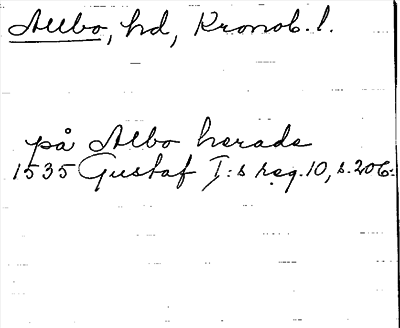 Allbo, hd, Kronob. l.
på Albo herade
1535 Gustaf I:s reg. 10, s. 206.